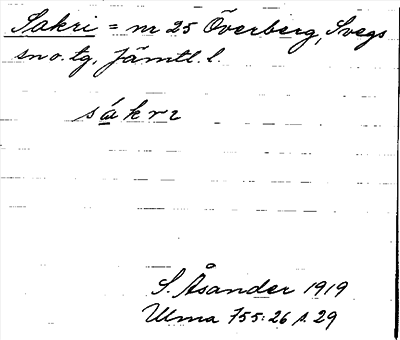 Sakri = m 25 Överberg, Svegs
sn o. tg, Jämtl. l.
sákrɩ
S. Åsander 1919
Ulma 755:26 s. 29